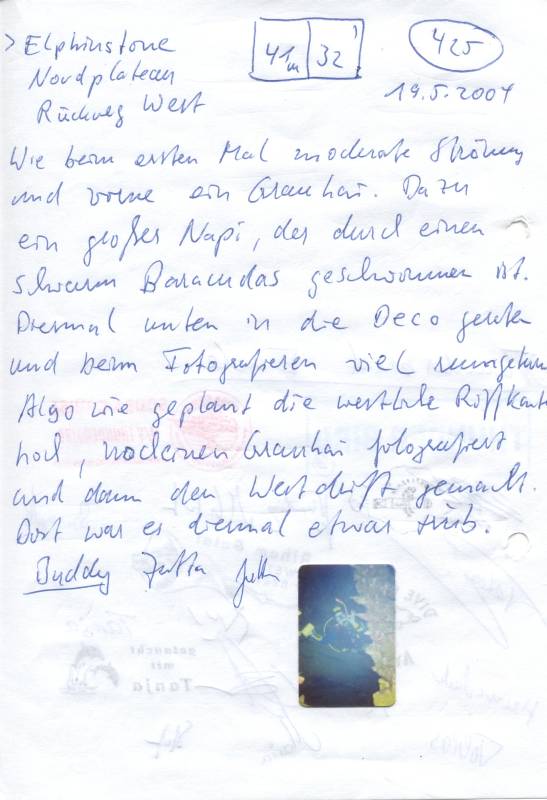 > Elphinstone
Nordplateau
Rückweg West
41m 32'
425
19.5.2004
Wie beim ersten Mal moderate Strömung
und vorne ein Grauhai. Dazu
ein großer Napi, der durch einen
Schwarm Baracudas geschwommen ist.
Diesmal unten in die Deco geraten
und beim Fotografieren viel rumgeturnt
Also wie geplant die westliche Riffkante
hoch, noch einen Grauhai fotografiert
und dann den Westdrift gemacht.
Dort war es diesmal etwas trüb.
Buddy Jutta
getaucht
mit
Tanja